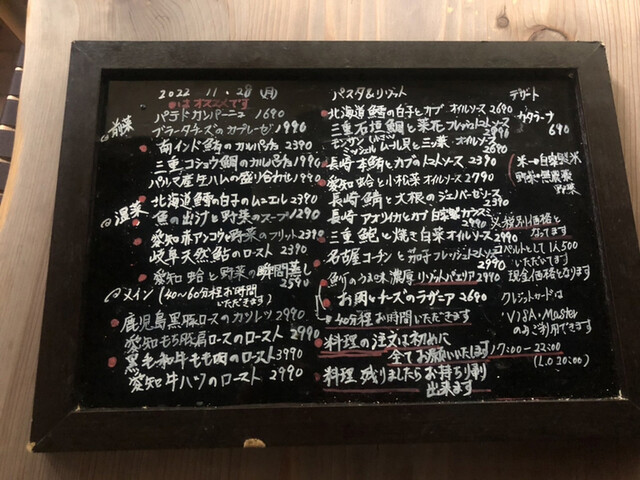 2022 11.28 (月)
●はオススメです
◎前菜
パテドカンパーニュ 1690
ブラータチーズのカプレーゼ 1990
南インド鮪のカルパッチョ 2390
三重コショウ鯛のカルパッチョ 1990
パルマ産生ハムの盛り合わせ 1990
北海道鱈の白子のムニエル 2390
◎温菜
魚の出汁と野菜のスープ 1290
愛知赤アンコウと野菜のフリット 2390
岐阜天然鮎のロースト 2390
愛知蛤と野菜の瞬間蒸し
2590
◎メイン (40~60分程お時間
いただきます)
鹿児島黒豚ロースのカツレツ 2990
愛知もち豚肩ロースのロースト 2990
黒毛和牛もも肉のロースト 3990
愛知牛ハツのロースト 2990
パスタ&リゾット
北海道鱈の白子とカブ オイルソース 2690
三重石垣鯛と菜花 フレッシュトマトソース
モンサンミッシェルムール貝と三つ葉 オイルソース 2690
長崎本鮪とカブのトマトソース 2390
愛知蛤と小松菜 オイルソース 2790
長崎鯖と大根のジェノベーゼソース
2390
長崎アオリイカとカブ 自家製カラスミ
2990
三重鮑と焼き白菜 オイルソース 2990
名古屋コーチンと茄子 フレッシュトマトソース
2990
魚介のうま味濃厚リゾットパエリア 2990
お肉とチーズのラザニア 2690
→40分程お時間いただきます
料理の注文は初めに
全てお願いいたします
料理残りましたらお持ち帰り
出来ます
デザート
カタラーナ
690
米→自家製米
野菜→無農薬
野菜
必税別価格と
なってます
コペルトとして1人500
いただいてます
現金価格となります
クレジットカードは
VISA・Master
のみご利用できます
17:00-22:00
(L.O.20:00)